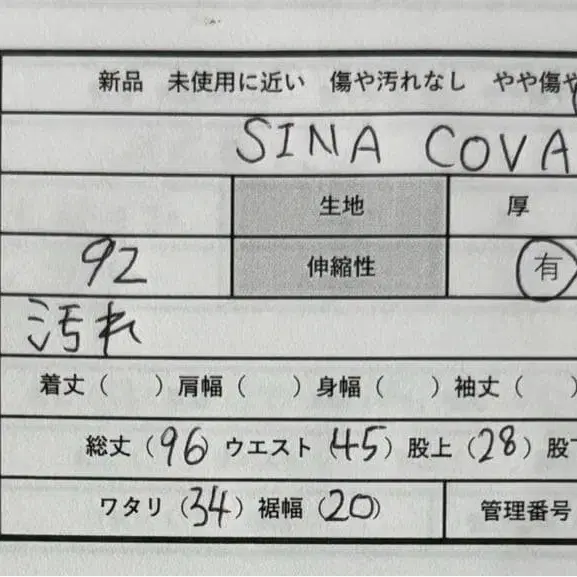 新品 未使用に近い 傷や汚れなし やや傷や
SINA COVA
生地 厚
92 伸縮性 有
汚れ
着丈( )肩幅( )身幅( )袖丈( )
総丈(96)ウエスト(45)股上(28)股下
ワタリ(34)裾幅(20) 管理番号